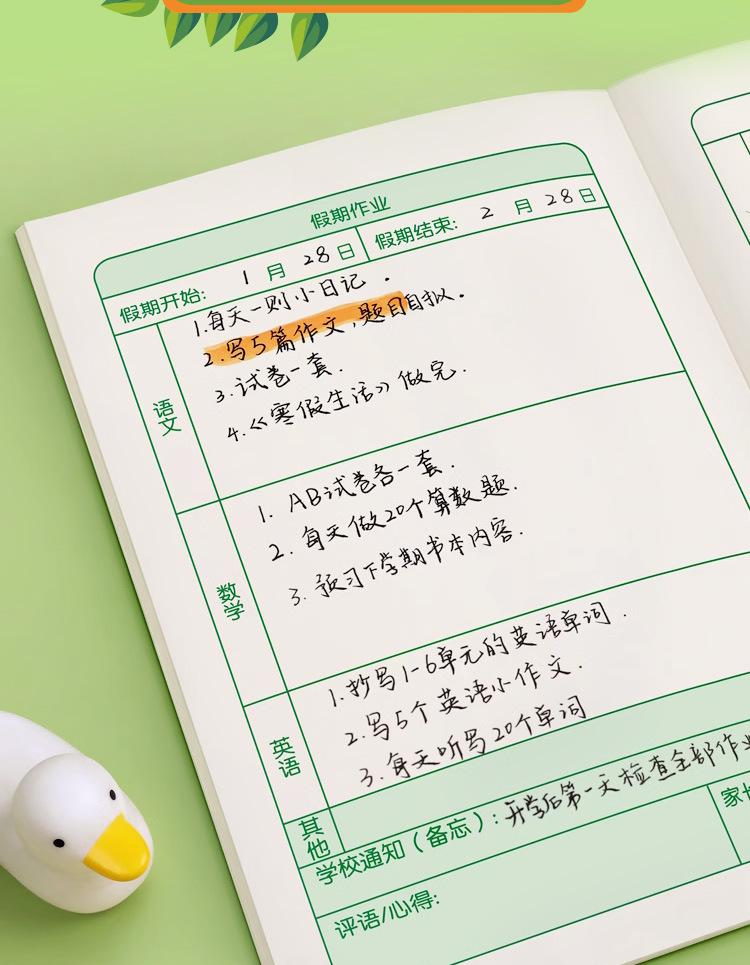 假期作业
假期开始: 1月28日 假期结束: 2月28日
语文
1.每天一则小日记.
2.写5篇作文,题目自拟.
3.试卷一套.
4.《寒假生活》做完.
数学
1. AB试卷各一套.
2. 每天做20个算数题.
3. 预习下学期书本内容.
英语
1.抄写1-6单元的英语单词.
2.写5个英语小作文.
3.每天听写20个单词
其他
学校通知(备忘): 开学后第一天检查全部作业
家长
评语/心得: